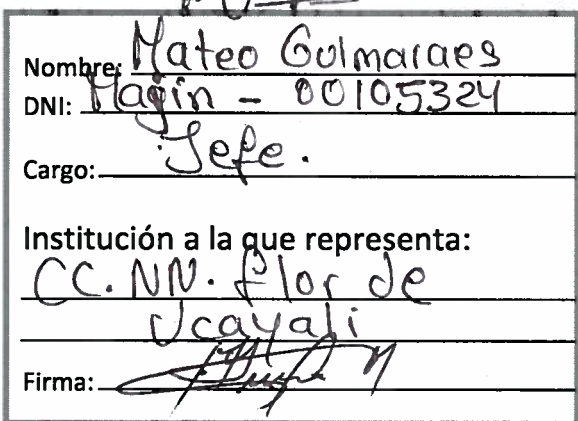 Nombre: Mateo Guimaraes
DNI: Magin - 00105324
Cargo: Jefe.
Institución a la que representa:
CC.NN. flor de
Ucayali
Firma: